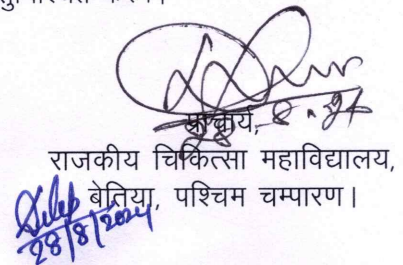 प्राचार्य,
राजकीय चिकित्सा महाविद्यालय,
बेतिया, पश्चिम चम्पारण।
Dilip
28/8/2024